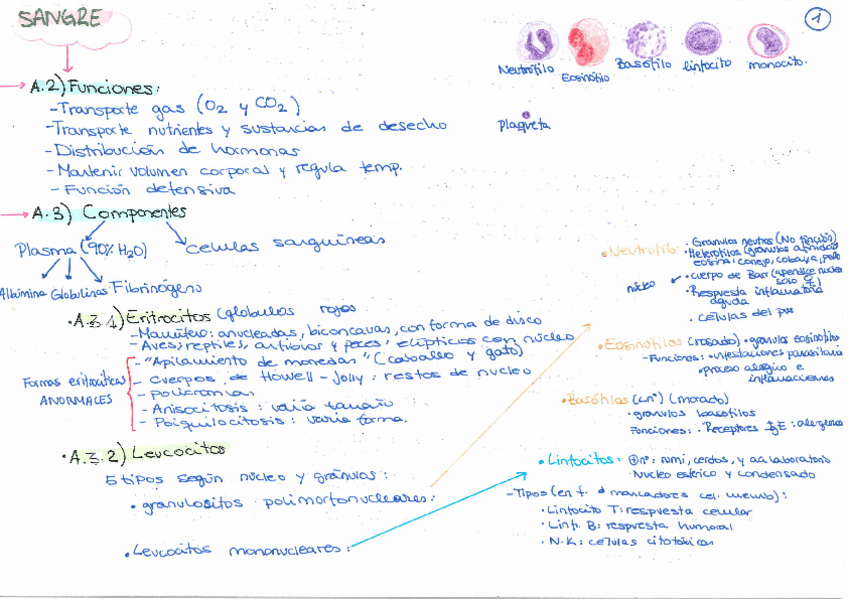 SANGRE
1
Neutrófilo Eosinófilo Basófilo linfocito monocito.
Plaqueta
A.2) Funciones:
-Transporte gas (O2 y CO2)
-Transporte nutrientes y sustancias de desecho
-Distribución de hormonas
-Mantener volumen corporal y regula temp.
-Función defensiva
A.3) Componentes
Plasma (90% H2O)
celulas sanguíneas
Albúmina Globulinas Fibrinógeno
·A.3.1) Eritrocitos (glóbulos rojos
-Mamífero: anucleadas, biconcavas, con forma de disco
-Aves, reptiles, anfibios y peces: elípticos con núcleo
Formas eritrocíticas ANORMALES
-"Apilamiento de monedas" (caballo y gato)
-Cuerpos de Howell-Jolly: restos de nucleo
-Policromasia
-Anisocitosis: varia tamaño
-Poiquilocitosis: varia forma.
·A.3.2) Leucocitos
5 tipos según núcleo y gránulos:
·granulositos polimorfonucleares:
·Leucocitos mononucleares:
·Neutrófilo
·Granulos neutros (No tinción)
·Heterófilos (granulos
eosina: conejo, cobaya, pollo
núcleo
·cuerpo de Barr (apendice nuclear
solo ♀)
·Respuesta inflamatoria
aguda
·células del pus
·Eosinófilos (rosado) ·granulos eosinofilos
-Funciones: ·infestaciones parasitaria
·proceso alergico e
inflamaciones
·Basófilos (↓nº) (morado)
·granulos basofilos
Funciones: ·Receptores IgE: alergenos
·Linfocitos: ⊕nº: rumi, cerdos, y aa laboratorio
Nucleo esferico y condensado
-Tipos (en f. d marcadores cel. memb):
·Linfocito T: respuesta celular
·Linf. B: respuesta humoral
·N.K: células citotóxicas